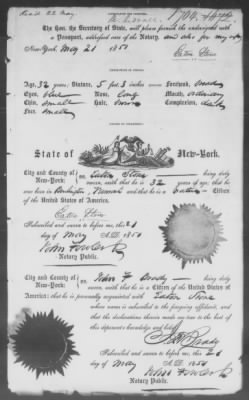 Rec'd 22 May
The Hon. the Secretary of State, will please forward the undersigned with
a Passport, certified copy of the Notary, and also for my wife
New-York, May 21 1850
Eaton Stone
Age, 32 years; Stature, 5 feet 3 inches Forehead, broad
Eyes, blue Nose, long Mouth, ordinary
Chin, small Hair, brown Complexion, dark
Face, small
State of New-York.
City and County of New-York: Eaton Stone being duly
sworn, saith, that he is 32 years of age; that he
was born in Burlington Vermont and that he is a native Citizen
of the United States of America.
Eaton Stone
Subscribed and sworn to before me, this 21
day of May A.D. 1850
John Fowler Jr
Notary Public.
City and County of New-York: being duly
sworn, saith, that he is a Citizen of the United States of
America; that he is personally acquainted with Eaton Stone
whose name is subscribed to the foregoing affidavit, and
that the declarations therein made are true to the best of
this deponent's knowledge and belief.
Subscribed and sworn to before me, this 21
day of May A.D. 1850
John Fowler Jr
Notary Public.